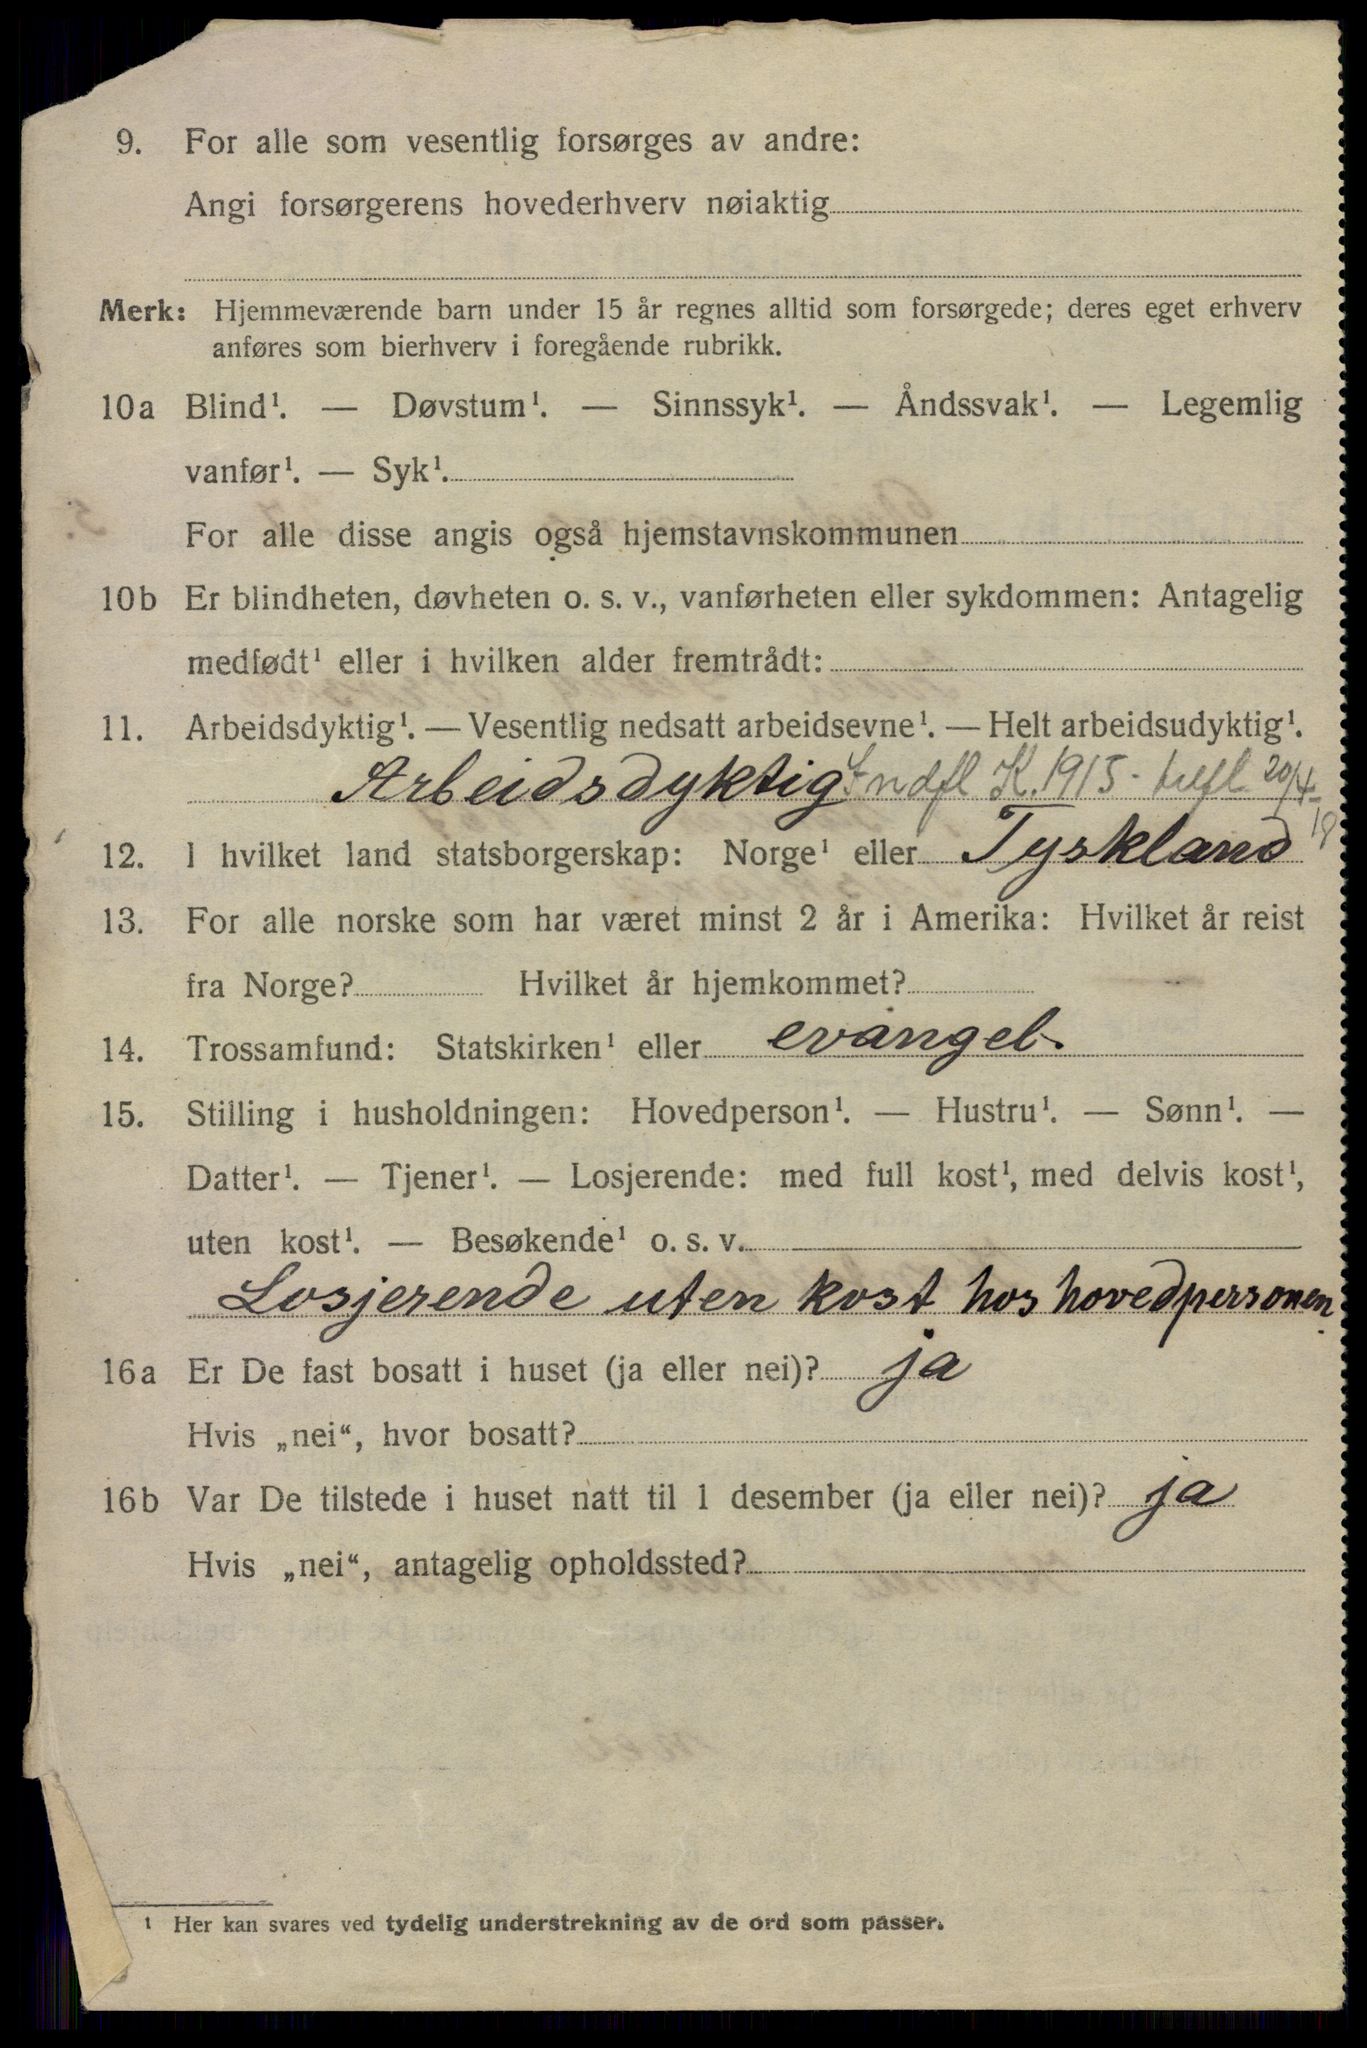 9. For alle som vesentlig forsørges av andre:
Angi forsørgerens hovederhverv nøiaktig
Merk: Hjemmeværende barn under 15 år regnes alltid som forsørgede; deres eget erhverv
anføres som bierhverv i foregående rubrikk.
10a Blind¹. — Døvstum¹. — Sinnssyk¹. — Åndssvak¹. — Legemlig
vanfør¹. — Syk¹.
For alle disse angis også hjemstavnskommunen
10b Er blindheten, døvheten o. s. v., vanførheten eller sykdommen: Antagelig
medfødt¹ eller i hvilken alder fremtrådt:
11. Arbeidsdyktig¹. — Vesentlig nedsatt arbeidsevne¹. — Helt arbeidsudyktig¹.
Arbeidsdyktig Indfl K. 1915 - 20/4-18
12. I hvilket land statsborgerskap: Norge¹ eller Tyskland
13. For alle norske som har været minst 2 år i Amerika: Hvilket år reist
fra Norge? Hvilket år hjemkommet?
14. Trossamfund: Statskirken¹ eller evangel.
15. Stilling i husholdningen: Hovedperson¹. — Hustru¹. — Sønn¹. —
Datter¹. — Tjener¹. — Losjerende: med full kost¹, med delvis kost¹,
uten kost¹. — Besøkende¹ o. s. v.
Losjerende uten kost hos hovedpersonen.
16a Er De fast bosatt i huset (ja eller nei)? ja
Hvis „nei“, hvor bosatt?
16b Var De tilstede i huset natt til 1 desember (ja eller nei)? ja
Hvis „nei“, antagelig opholdssted?
¹ Her kan svares ved tydelig understrekning av de ord som passer.